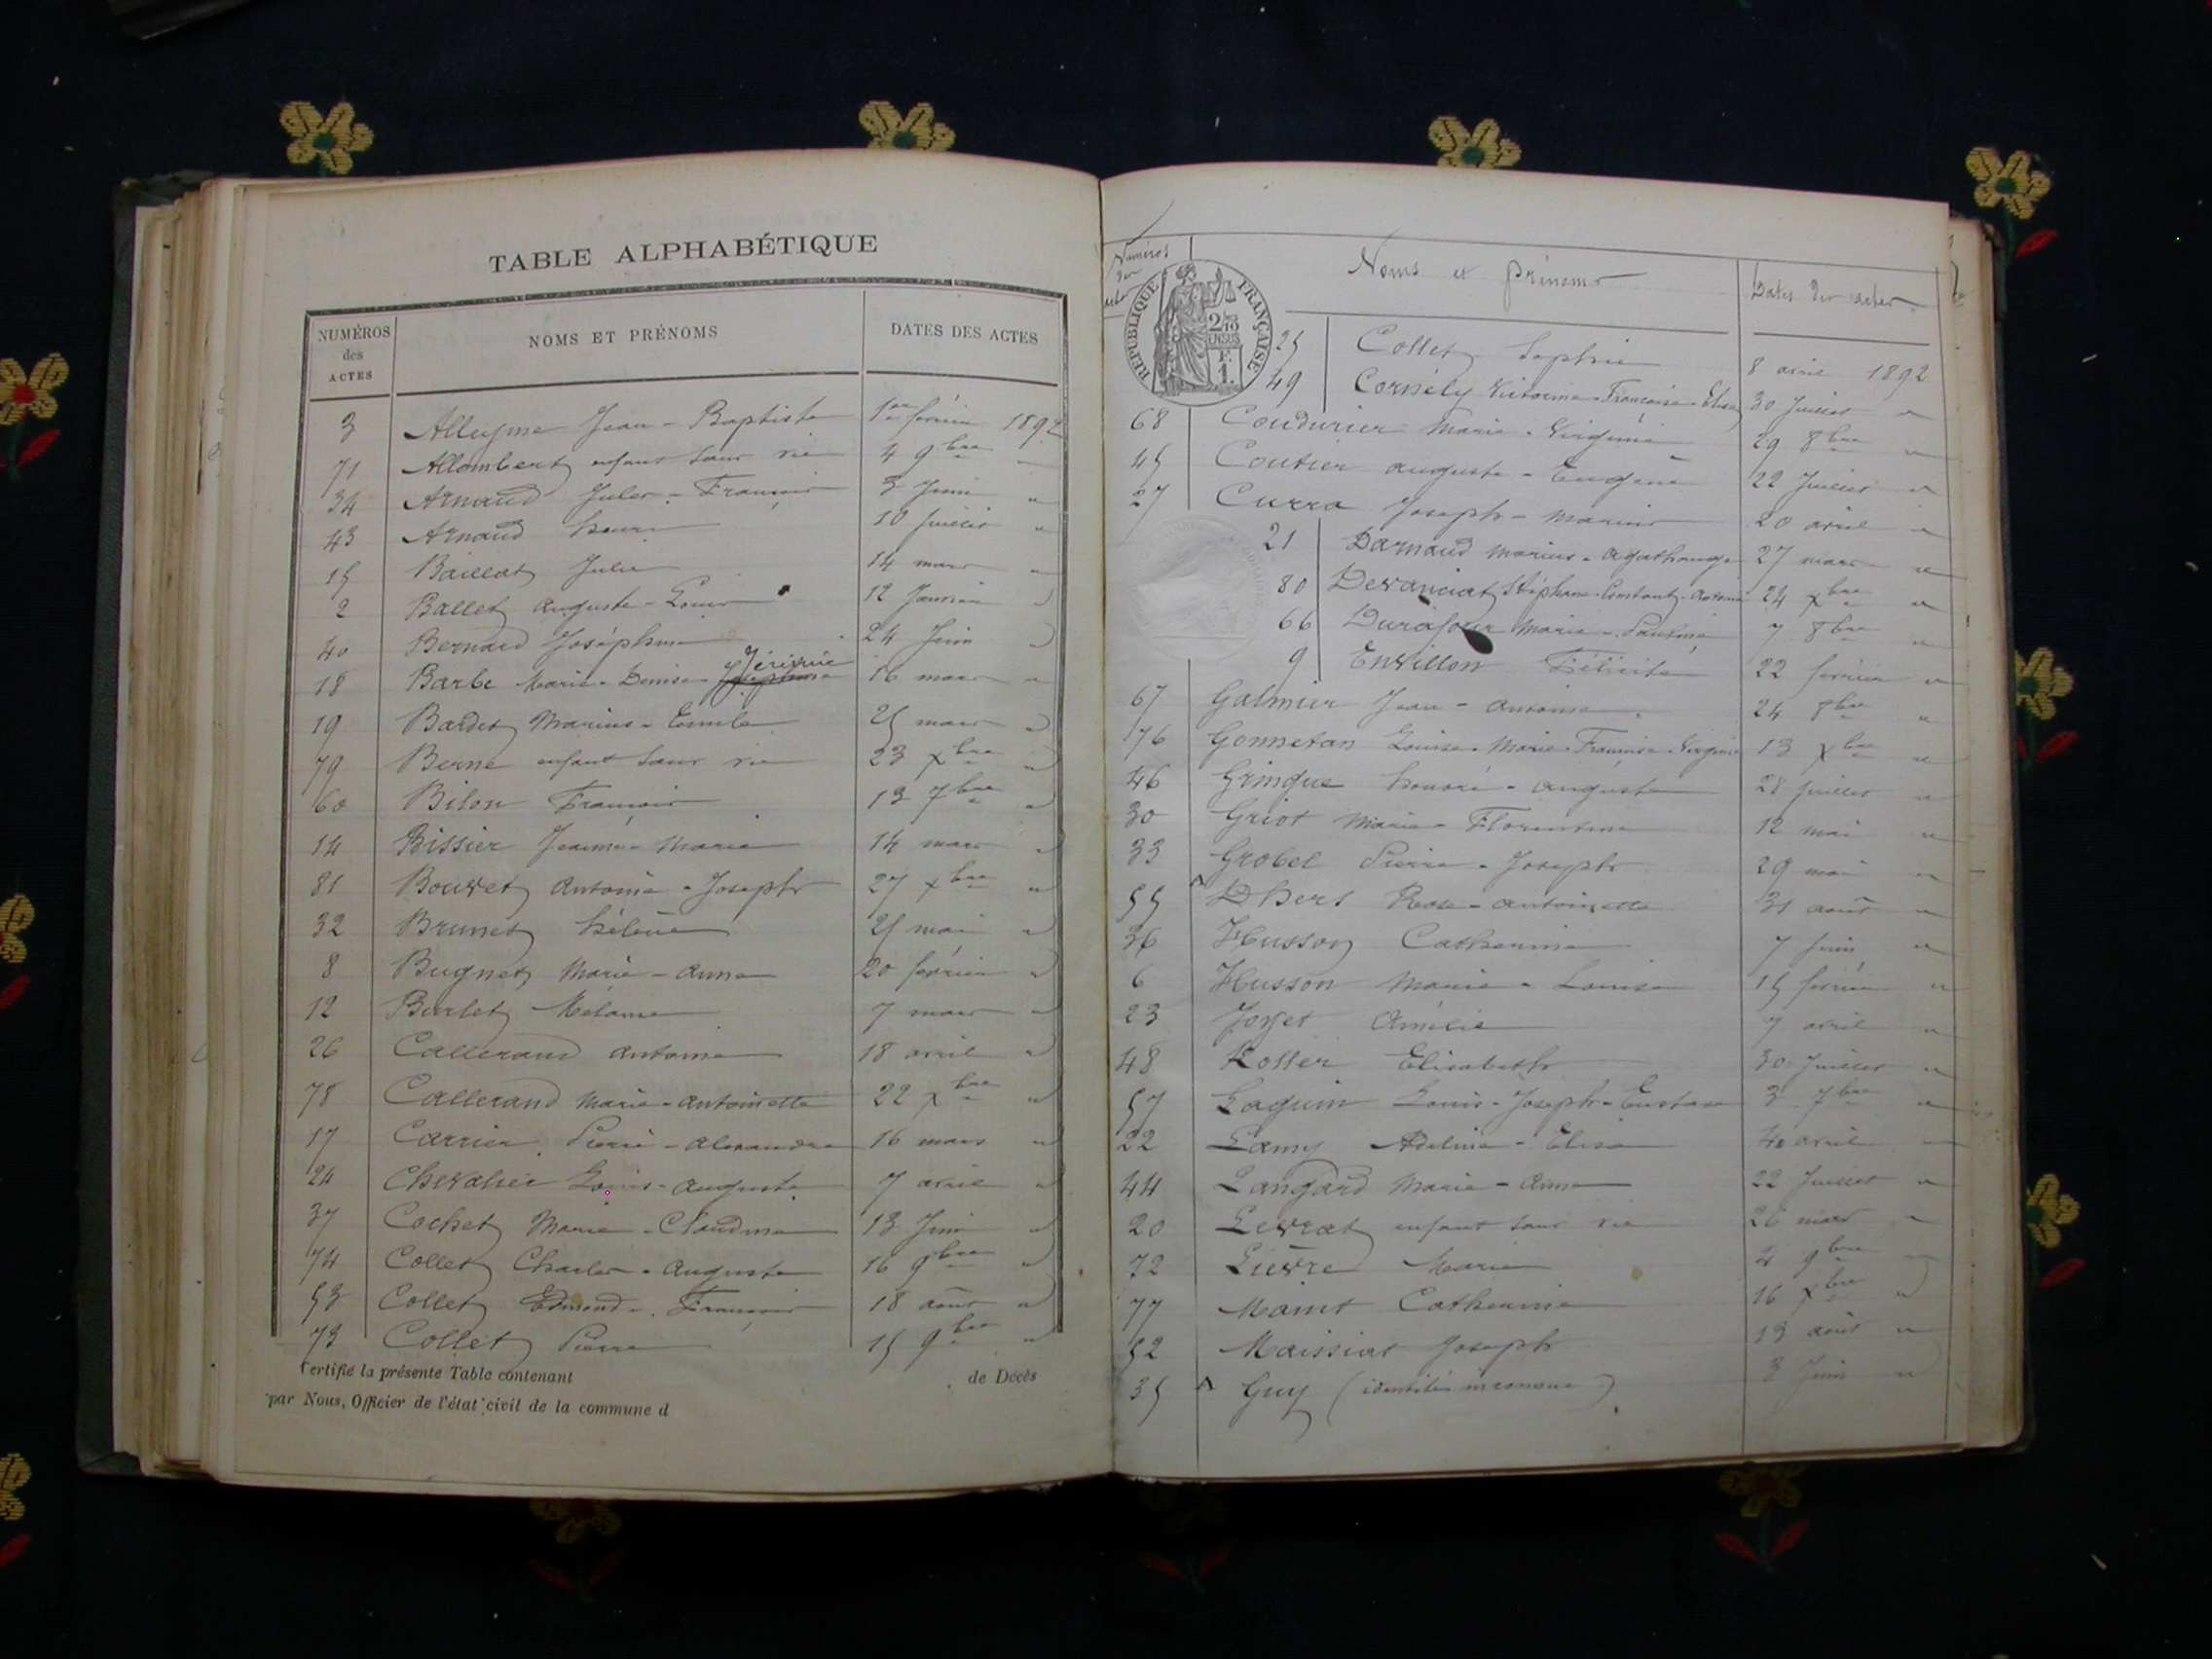 TABLE ALPHABÉTIQUE
NUMÉROS des ACTES NOMS ET PRÉNOMS DATES DES ACTES
3 Jean - Baptiste 1er février 1892
71 Allombert enfant sans vie 4 9bre "
34 Arnaud Jules - François 3 Juin "
43 Arnaud henri 10 Juillet "
15 Baillat Julie 14 mars "
2 Ballet Auguste - Louis 12 Janvier "
40 Bernard Joséphine 24 Juin "
18 Barbe Marie - Denise - 16 mars "
19 Bardet Marius - Emile 25 mars "
79 Berne enfant sans vie 23 xbre "
60 Bilon François 13 7bre "
14 Bissier Jeanne - Marie 14 mars "
81 Bouvet Antoine - Joseph 27 xbre "
32 Brunet hélène 25 mai "
8 Bugnet Marie - Anne 20 février "
12 Burlet Mélanie 7 mars "
26 Callerand Antoine 18 avril "
78 Callerand Marie - Antoinette 22 xbre "
17 Carrier Pierre - Alexandre 16 mars "
24 Chevalier Louis - Auguste 7 avril "
37 Cochet Marie - Claudine 13 Juin "
74 Collet Charles - Auguste 16 9bre "
53 Collet Edmond - François 18 août "
73 Collet Pierre 15 9bre "
Certifié la présente Table contenant de Décès
par Nous, Officier de l'état civil de la commune d
Numéros des actes Noms et prénoms Dates des actes
RÉPUBLIQUE FRANÇAISE
2/10 EN SUS
F. 1.
25 Collet Sophie 8 avril 1892
49 Cornély Victorine - Françoise - Elisa 30 Juillet "
68 Coudurier Marie - Virginie 29 8bre "
45 Coutier Auguste - Eugène 22 Juillet "
27 Curra Joseph - Marius 20 avril "
21 Darnaud Marius - Agathange 27 mars "
80 Devanciat Stéphane - Constant - Antoine 24 xbre "
66 Durafour Marie - Pauline 7 8bre "
9 Envillon Félicité 22 février "
67 Galmier Jean - Antoine 24 8bre "
76 Gonnetan Louise - Marie - Françoise - Virginie 13 xbre "
46 Gringue honoré - Auguste 28 juillet "
30 Griot Marie - Florentine 12 mai "
33 Grobel Pierre - Joseph 29 mai "
55 Rose - Antoinette 31 août "
36 Husson Catherine 7 juin "
6 Husson Marie - Louise 15 février "
23 Amélie 7 avril "
48 Elisabeth 30 Juillet "
57 Laguin Louis - Joseph - Eustase 3 7bre "
22 Lamy Adeline - Elisa avril "
44 Langard Marie - Anne 22 Juillet "
20 Levrat enfant sans vie 26 mars "
72 Lièvre Marie 4 9bre "
77 Catherine 16 xbre "
52 Maissiat Joseph 13 août "
35 Guy (identité inconnue) 3 Juin "